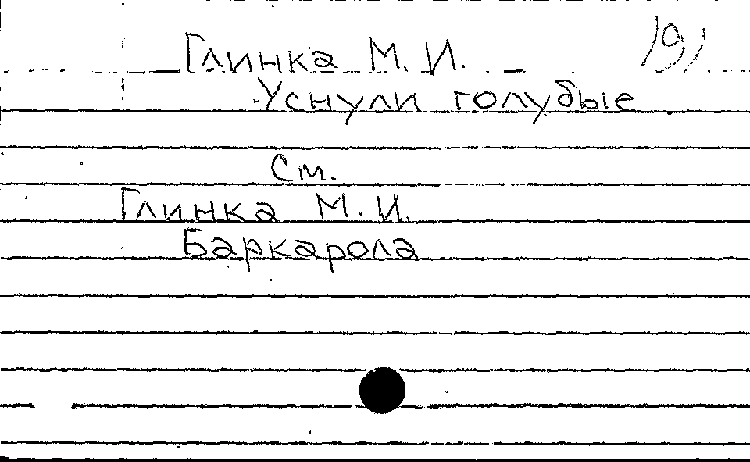 Глинка М. И.
Уснули голубые
См.
Глинка М. И.
Баркарола